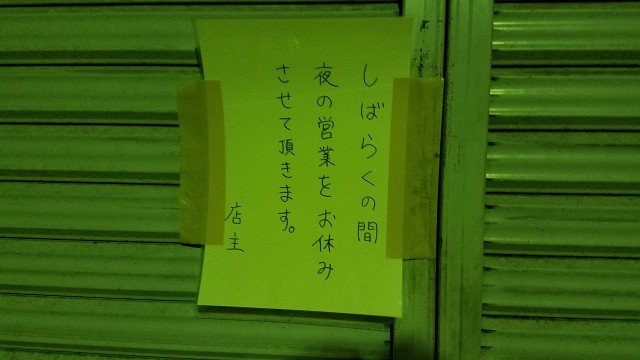 しばらくの間
夜の営業をお休み
させて頂きます。
店主